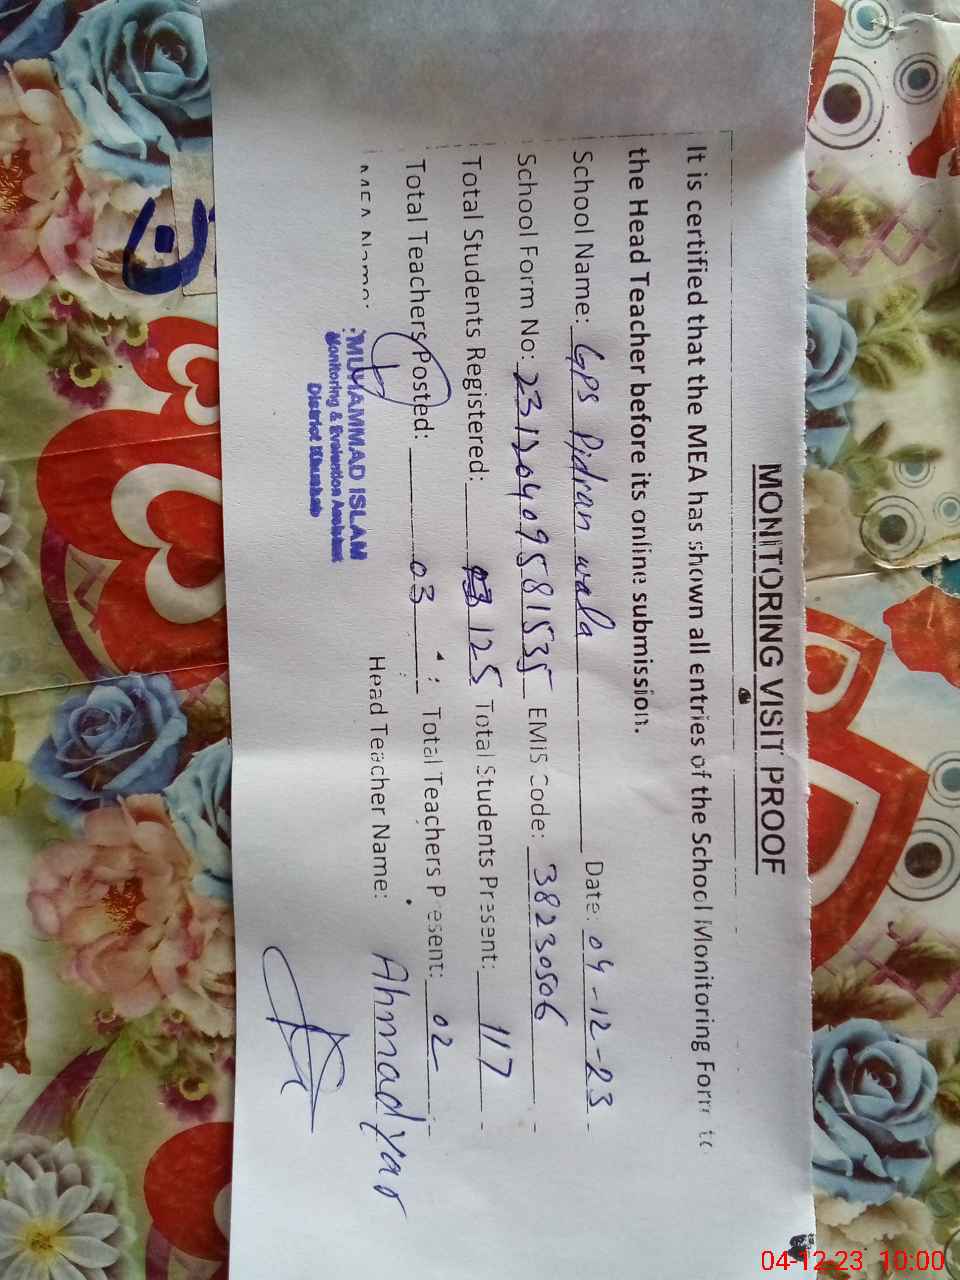 MONITORING VISIT PROOF
It is certified that the MEA has shown all entries of the School Monitoring Form to
the Head Teacher before its online submission.
School Name: GPS Pidran wala Date: 04-12-23
School Form No: 23120409581535 EMIS Code: 38230506
Total Students Registered: 03 125 Total Students Present: 117
Total Teachers Posted: 03 Total Teachers Present: 02
MEA Name: MUHAMMAD ISLAM Head Teacher Name: Ahmad Yar
Monitoring & Evaluation Assistant
District Khushab
04-12-23 10:00